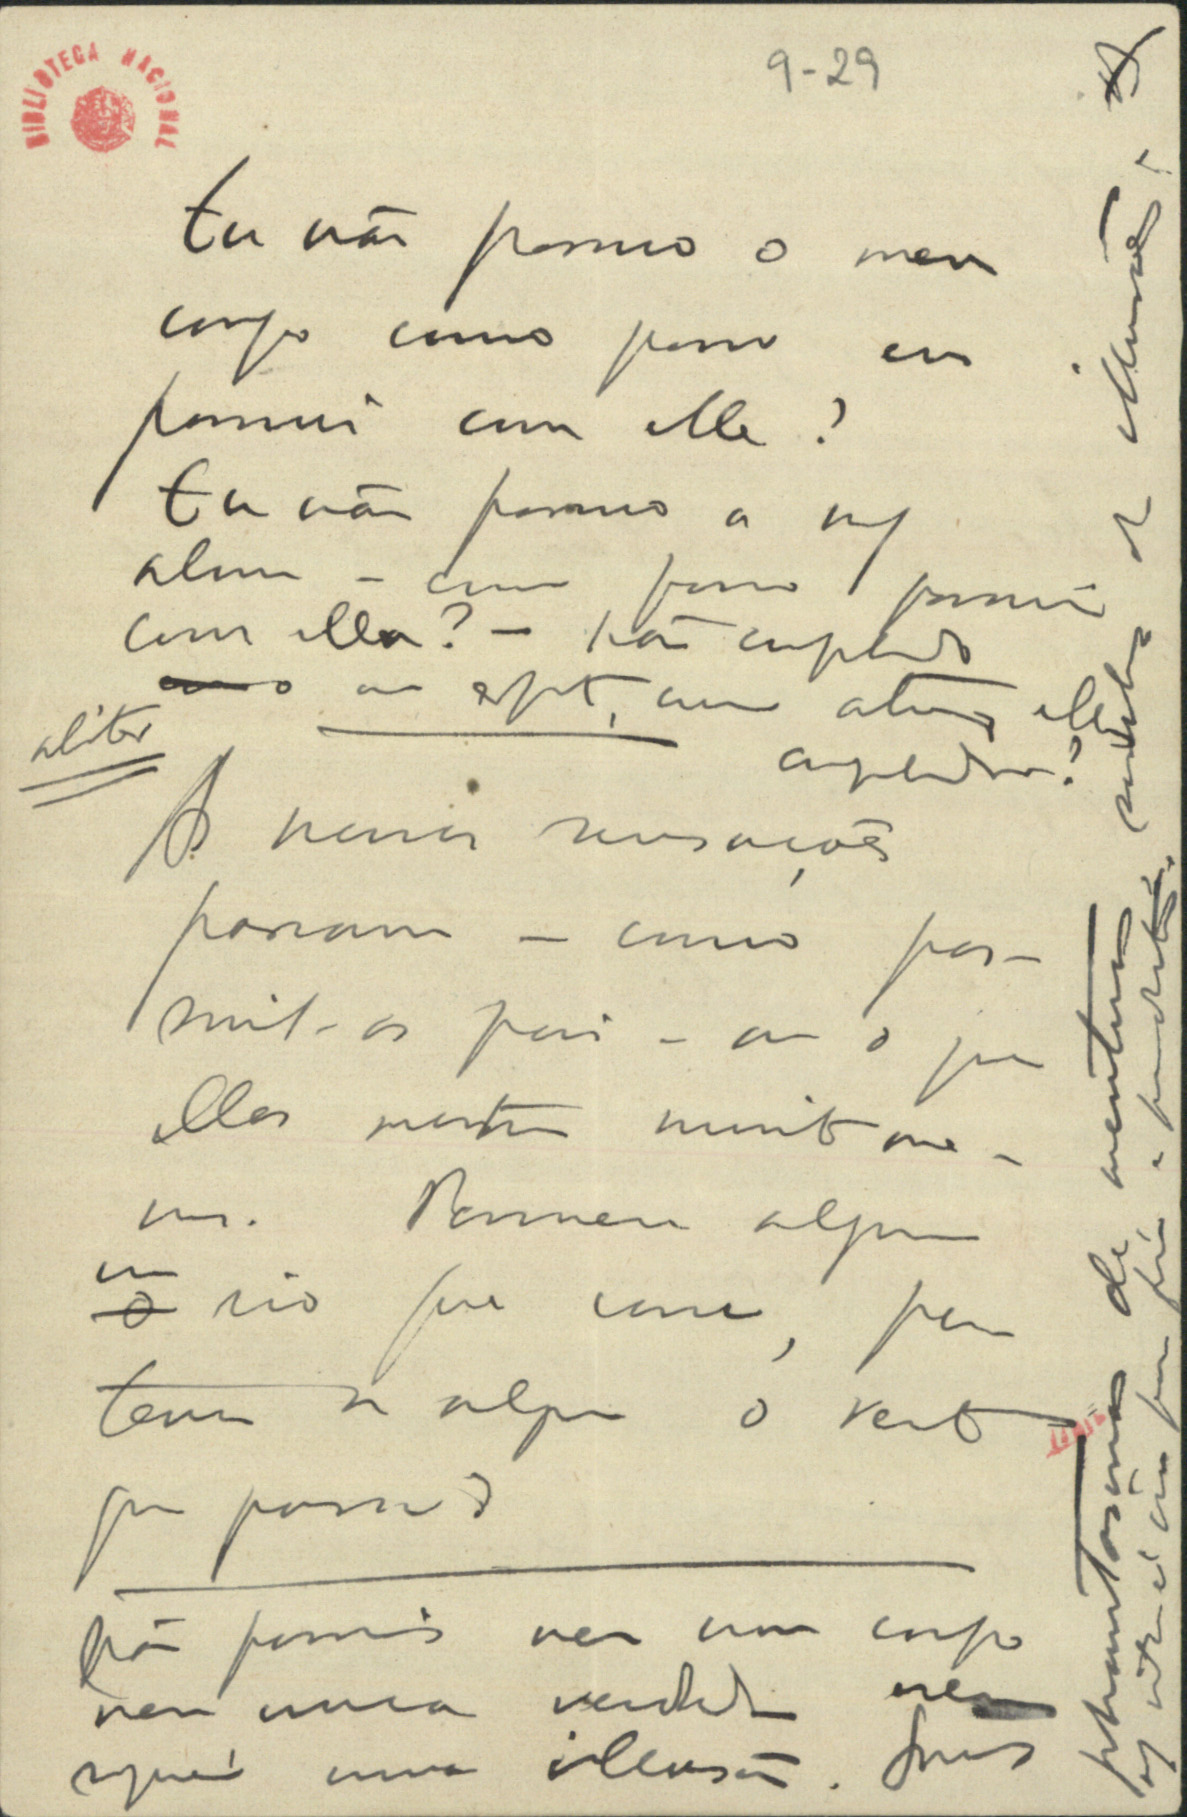 BIBLIOTECA NACIONAL
9-29
Eu não possuo o meu
corpo – como posso eu
possuir com elle?
Eu não possuo a m/
alma – como posso possuir
com ella? – Não comprehendo
o meu espto, como atravez elle
comprehender?
aliter
As nossas sensações
passam – como pos-
suil-as pois – ou o que
ellas mostram muito me-
nos. Possue alguem
um rio que corre, per
tence a alguem o vento
que passa?
Não possuimos nem um corpo
nem uma verdade nem
sequer uma illusão. Somos
phantasmas de mentiras, sombras de illusões, e
a m/ vida é vã por fóra e por dentro.